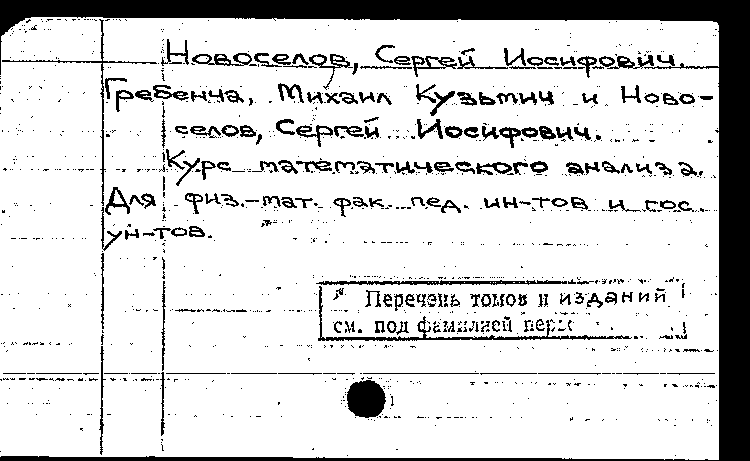 Новоселов, Сергей Иосифович.
Гребенча, Михаил Кузьмич и Ново-
селов, Сергей Иосифович.
Курс математического анализа.
Для физ.-мат. фак. пед. ин-тов и гос.
ун-тов.
Перечень томов и изданий
см. под фамилией